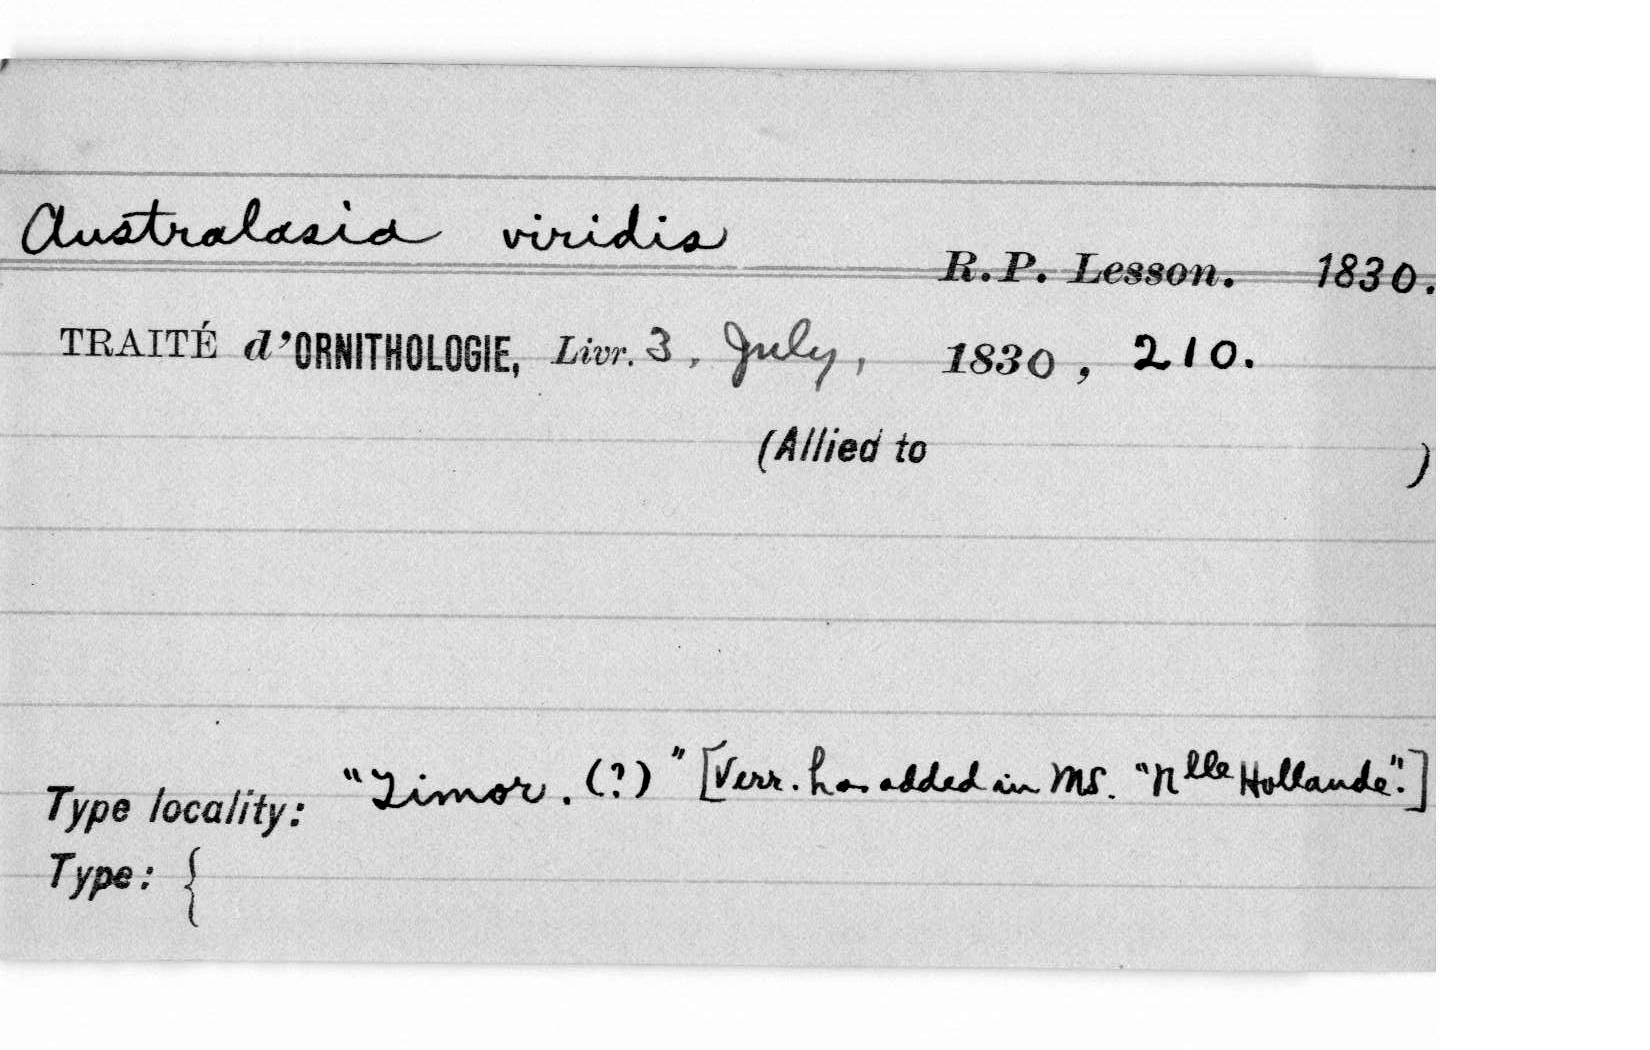 Australasia viridis
R.P. Lesson. 1830.
TRAITÉ d'ORNITHOLOGIE, Livr. 3, July, 1830, 210.
(Allied to )
Type locality: "Timor. (?)" [Verr. has added in MS. "Nlle Hollande".]
Type: {